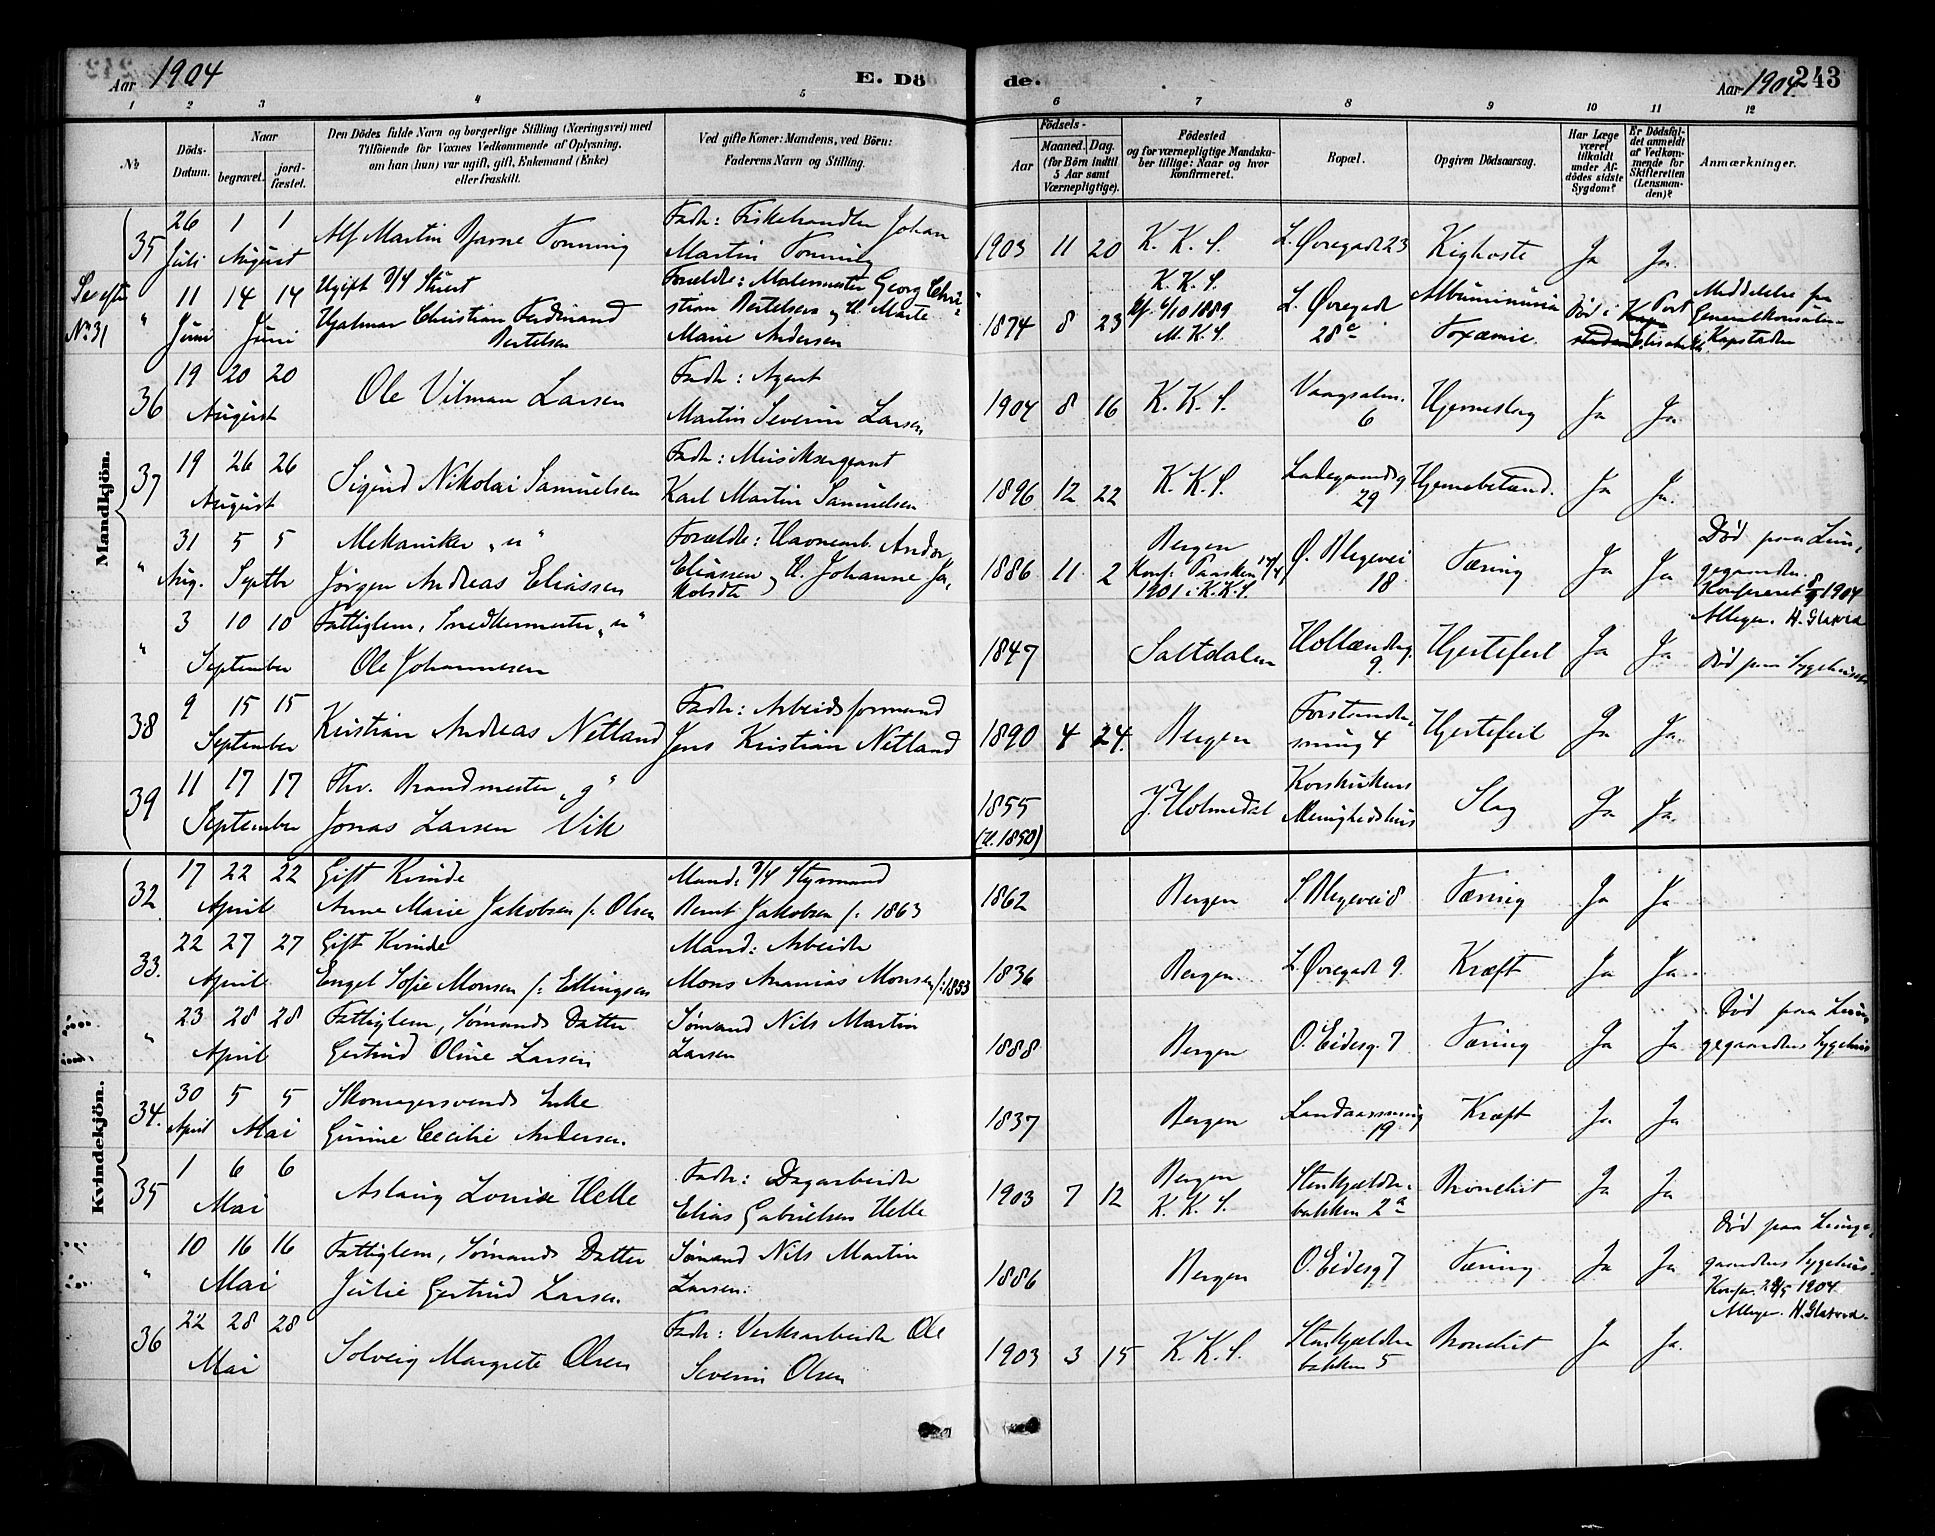 Aar 1904
E. Dö
de.
Aar 1904 243
1 2 3 4 5 6 7 8 9 10 11 12
No
Döds-
Datum.
Naar
begravet.
jord-
fæstet.
Den Dödes fulde Navn og borgerlige Stilling (Næringsvei) med
Tilföiende for Voxnes Vedkommende af Oplysning,
om han (hun) var ugift, gift, Enkemand (Enke)
eller fraskilt.
Ved gifte Koner: Mandens, ved Börn:
Faderens Navn og Stilling.
Födsels-
Aar
Maaned. Dag.
(for Börn indtil
5 Aar samt
Værnepligtige).
Födested
og for værnepligtige Mandska-
ber tillige: Naar og hvor
konfirmeret.
Bopæl.
Opgiven Dödsaarsag.
Har Læge
været
tilkaldt
under Af-
dödes sidste
Sygdom?
Er Dödsfal-
det anmeldt
af Vedkom-
mende for
Skifteretten
(Lensman-
den)?
Anmærkninger.
Mandkjön.
35 26 Juli 1 1 August
Alf Martin Bjarne Tonning
Fader: Fiskehandler Johan
Martin Tonning
1903 11 20 K. K. S. L. Øvregade 23 Kighoste Ja Ja.
Se efter
No 31
" 11 14 14
Juni Juni
Ugift Stuert
Hjalmar Christian Ferdinand
Bertelsen
Forældre: Malermester Georg Chri-
stian Bertelsen og H. Marte
Marie Andersen
1874 8 23
K. K. S.
1889
M. K. S.
L. Øvregade
28c
Albuminuria
Toxæmie.
Død i Port
Elisabeth
Meddelelse fra
Generalkonsulen
i Kapstaden
36 19 20 20
August
Ole Vilman Larsen
Fader: Agent
Martin Severin Larsen
1904 8 16 K. K. S. Vaagsalm. 6 Hjerneslag Ja Ja.
37 19 26 26
August
Sigurd Nikolai Samuelsen
Fader: Musiksergeant
Karl Martin Samuelsen
1896 12 22 K. K. S. Ladegaardsg 29 Hjernebetænd. Ja Ja.
" 31 5 5
Aug. Septbr
Mekaniker "u"
Jørgen Andreas Eliassen
Forældre: Havnearb. Anders
Eliassen og H. Johanne Ja-
kobsdtr
1886 11 2
Bergen
Konf: Paasken 14/4
1901 i K. K. S.
Ø. Blegevei
18
Tæring Ja Ja
Død paa Lun-
gegaarden.
Konfereret 8/9 1904
Alleger. H. Slatvid
" 3 10 10
September
Fattiglem, Snedkermester "u"
Ole Johannesen
1847 Saltdalen Hollænderg. 9. Hjertefeil Ja Ja
Død paa Sygehuset
38 9 15 15
September
Kristian Andreas Netland
Fader: Arbeidsformand
Jens Kristian Netland
1890 4 24. Bergen Forstander- smug 4 Hjertefeil Ja Ja.
39 11 17 17
September
Fhv. Brandmester "g"
Jonas Larsen Vik
1855
(H. 1850)
Y. Holmedal
Korskirkens
Menighedshus
Slag Ja Ja.
Kvindekjön.
32 17 22 22
April
Gift Kvinde
Anne Marie Jakobsen f. Olsen
Mand: Styrmand
Bernt Jakobsen f. 1863
1862 Bergen S. Blegevei 8 Tæring Ja Ja
33. 22 27 27
April
Gift Kvinde
Engel Sofie Monsen f: Ellingsen
Mand: Arbeider
Mons Ananias Monsen f: 1853
1836 Bergen L. Øvregade 9. Kræft Ja Ja
" 23 28 28
April
Fattiglem, Sømands Datter
Gertrud Oline Larsen
Sømand Nils Martin
Larsen
1888 Bergen O. Eidesg. 7 Tæring Ja Ja
Død paa Lun-
gegaardens Sygehus
34. 30 5 5
April Mai
Skomagersvends Enke
Gurine Cecilie Andersen.
1837 Bergen Landaassmug 19 Kræft Ja Ja
35 1 6 6
Mai
Aslaug Louise Helle
Fader: Dagarbeider
Elias Gabrielsen Helle
1903 7 12
Bergen
K. K. S.
Stenkjælder-
bakken 2a
Bronchit Ja Ja
" 10 16 16
Mai
Fattiglem, Sømands Datter
Julie Gertrud Larsen
Sømand Nils Martin
Larsen.
1886 Bergen O. Eidesg 7 Tæring Ja Ja
Død paa Lunge-
gaardens Sygehus.
Konfer. 29/5 1904
Alleger. H. Slatvid.
36 22 28 28
Mai
Solveig Margrete Olsen
Fader: Verksarbeider Ole
Severin Olsen
1903 3 15 K. K. S.
Stenkjælder
bakken 5
Bronchit Ja Ja.